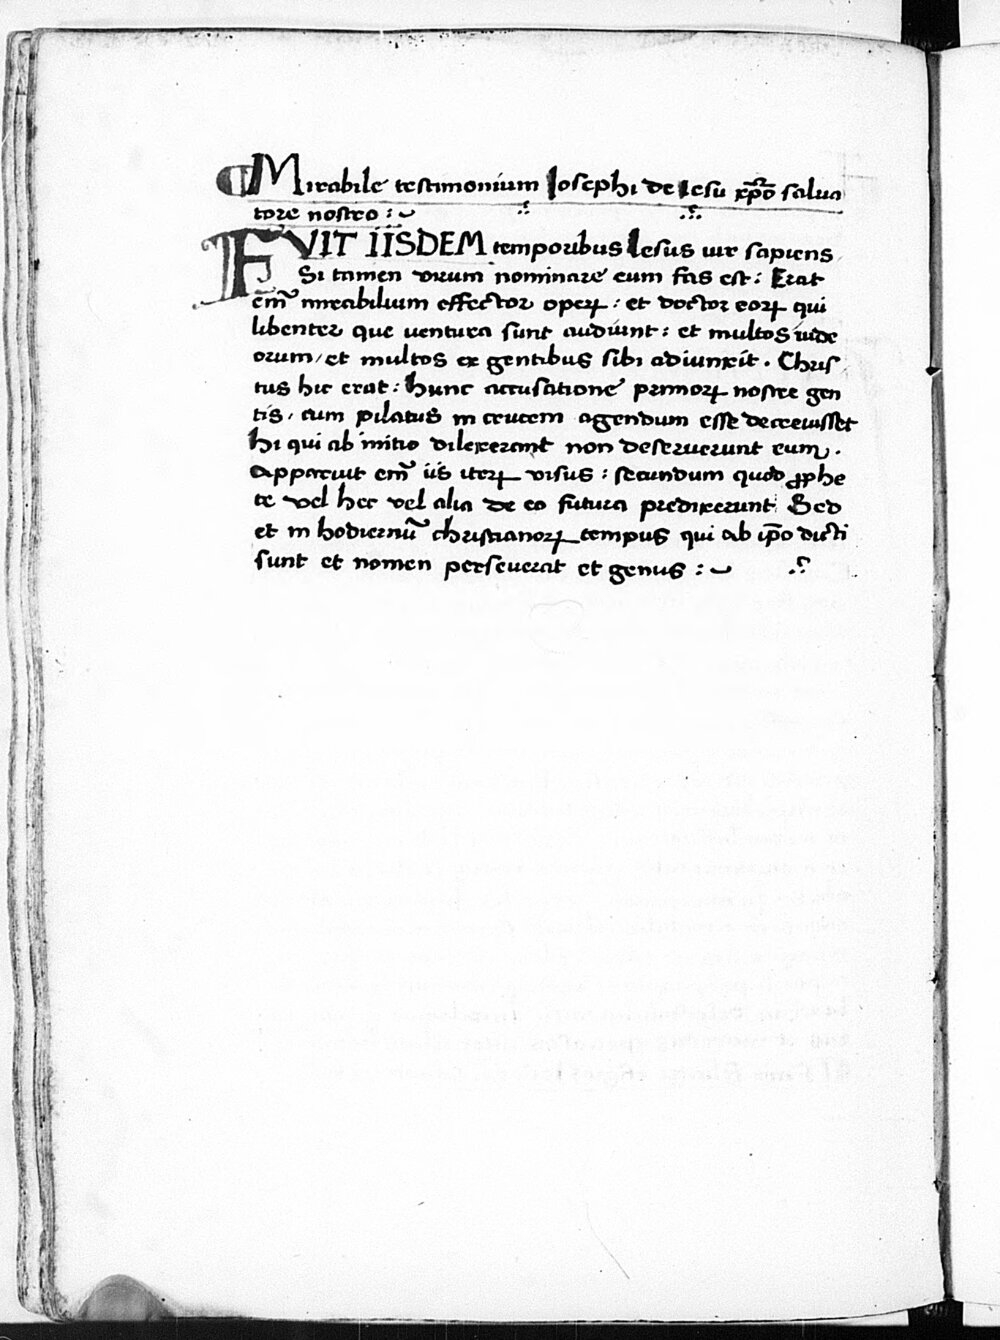 ¶ Mirabile testimonium Iosephi de Iesu xp̄o salua
tore nostro :~
FVIT IISDEM temporibus Iesus uir sapiens
Si tamen virum nominare eum fas est : Erat
em̄ mirabilium effector operꝝ : et doctor eorꝝ qui
libenter que uentura sunt audiunt : et multos iude
orum / et multos ex gentibus sibi adiunxit . Chris
tus hic erat : hunc accusatione primorꝝ nostre gen
tis . cum pilatus in crucem agendum esse decreuisset
hi qui ab initio dilexerant non deseruerunt eum .
apparuit em̄ iis iterꝝ visus : secundum quod ꝓphe
te vel hec vel alia de eo futura predixerunt Sed
et in hodiernū christianorꝝ tempus qui ab ip̄o dicti
sunt et nomen perseuerat et genus :~